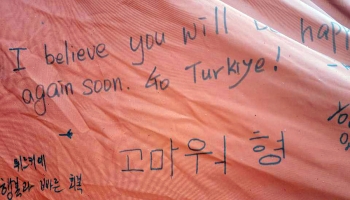 I believe you will be happ
again soon. Go Turkiye!
고마워 형
행복과 빠른 회복